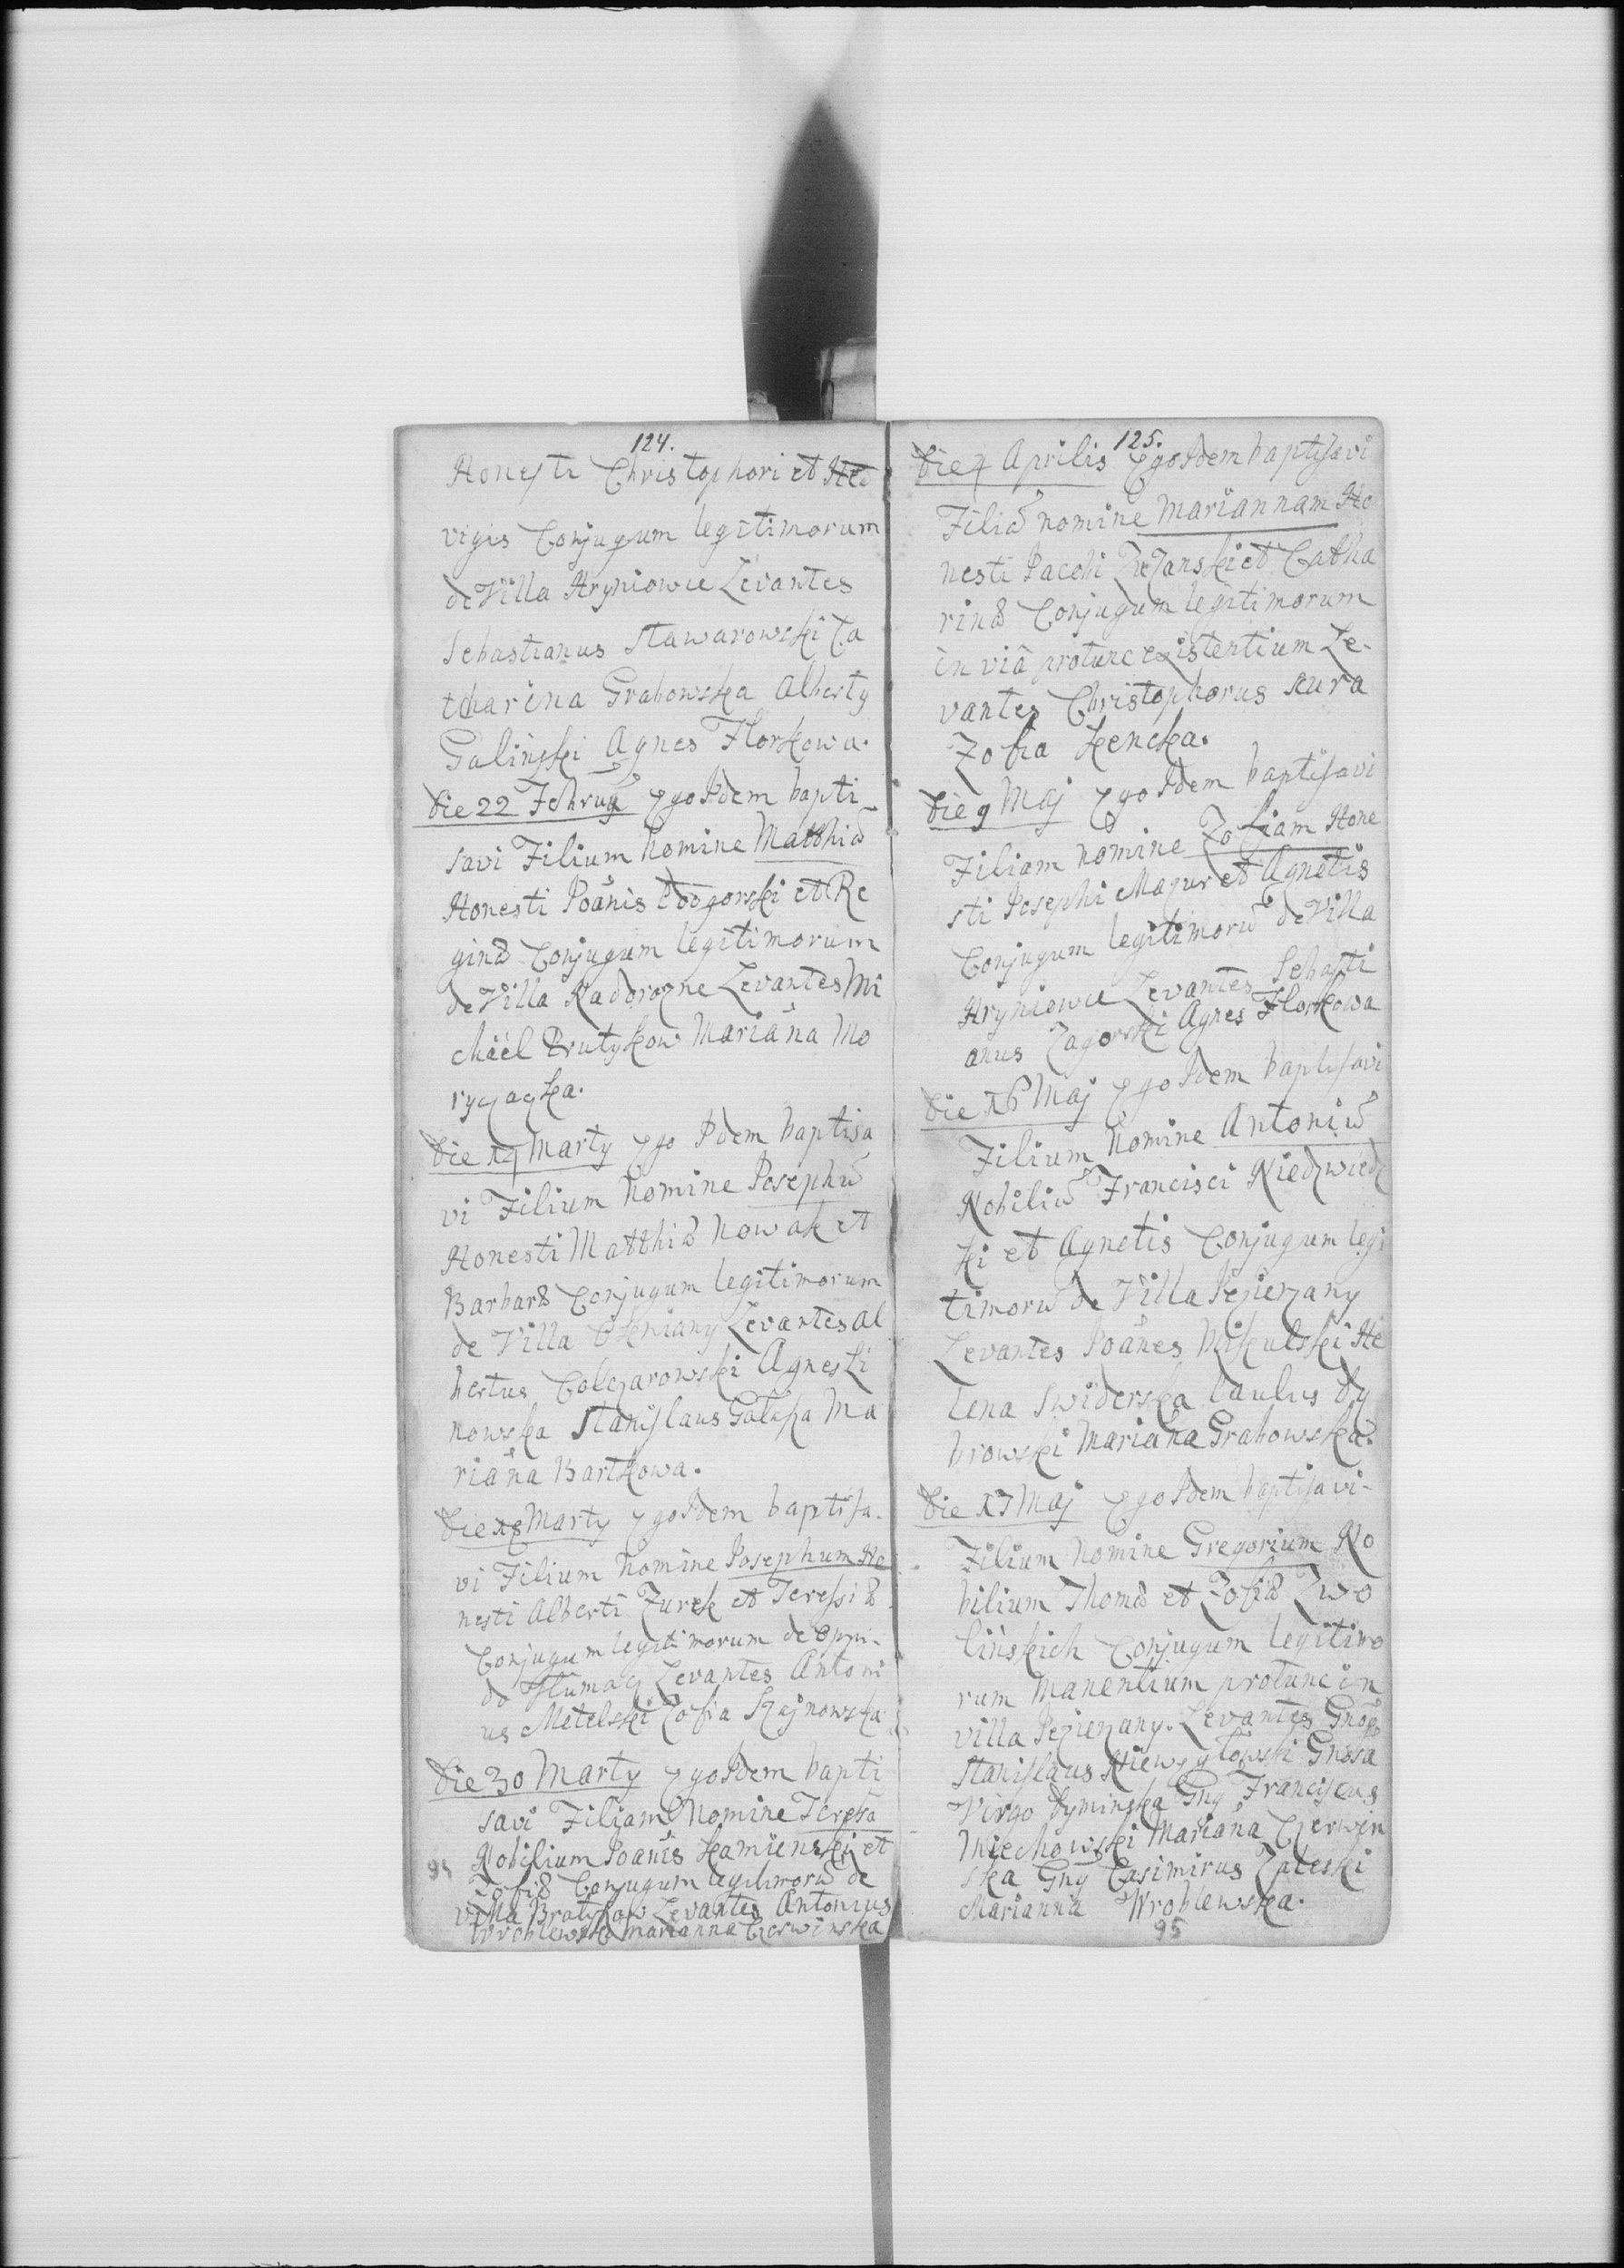 124.
Honesti Christophori et Hed
vigis Conjugum legitimorum
de Villa Hryniowce Levantes
Sebastianus Stawarowski Ca
tharina Grabowska Alberty
Galinski Agnes Florkowa.
Die 22 Februarÿ Ego Idem bapti
savi Filium Nomine Matthiã
Honesti Joãnis Podgorski et Re
ginæ Conjugum legitimorum
de Villa Nadorozne Levantes Mi
chäel Prutykow Mariãna Mo
ryczacka.
Die 14 Marty Ego Idem baptisa
vi Filium Nomine Josephũ
Honesti Matthiæ Nowak et
Barbaræ Conjugum legitimorum
de Villa Okniany Levantes Al
bertus Colczarowski Agnes Li
nowska Stanislaus Gałuska Ma
riãna Bartkowa.
Die 18 Marty Ego Idem baptisa-
vi Filium Nomine Josephum Ho
nesti Alberti Zurek et Teressiæ
Conjugum legitimorum de Oppi-
do Tłumacz Levantes Antoni
us Metelski Zofia Szajnowska
Die 30 Marty Ego Idem bapti
savi Filiam Nomine Teresã
Nobilium Joãnis Kamienski et
Zofiæ Conjugum legitimorũ de
Villa Bratyszow Levantes Antonius
Wroblewski Marianna Czerwinska
94
125.
Die 4 Aprilis Ego Idem baptisavi
Filiã nomine Mariannam Ho
nesti Jacobi Zuzanski et Catha
rinæ Conjugum legitimorum
in viâ protunc existentium Le-
vantes Christophorus Kura
Zofia Kencka.
Die 9 Maj Ego Idem baptisavi
Filiam nomine Zofiam Hone
sti Josephi Mazur et Agnetis
Conjugum legitimorũ de Villa
Hryniowce Levantes Sebasti
anus Zagorski Agnes Florkowa
Die 16 Maj Ego Idem baptisavi
Filium Nomine Antoniũ
Nobiliũ Francisci Niedzwiedz
ki et Agnetis Conjugum legi
timorũ de Villa Jezierzany
Levantes Joãnes Mikulski He
lena Swiderska Paulus Dy
browski Mariãna Grabowska.
Die 17 Maj Ego Idem baptisavi-
Filium Nomine Gregorium No
bilium Thomæ et Zofiæ Zwo
linskich Conjugum legitimo
rum Manentium protunc in
villa Jezierzany. Levantes Gnõs
Stanislaus Kiewzytowski Gnosã
Virgo Dyminska Gnÿ Franciscus
Miechowski Mariãna Czerwin
ska Gnÿ Casimirus Zaleski
Marianna Wroblewska.
95